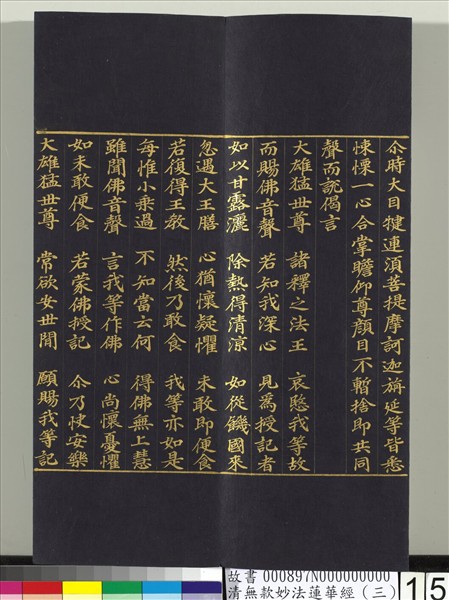 尒時大目揵連須菩提摩訶迦旃延等皆悉
悚慄一心合掌瞻仰尊顏目不暫捨即共同
聲而說偈言
大雄猛世尊　諸釋之法王　哀愍我等故
而賜佛音聲　若知我深心　見為授記者
如以甘露灑　除熱得清涼　如從饑國來
忽遇大王膳　心猶懷疑懼　未敢即便食
若復得王教　然後乃敢食　我等亦如是
每惟小乘過　不知當云何　得佛無上慧
雖聞佛音聲　言我等作佛　心尚懷憂懼
如未敢便食　若蒙佛授記　尒乃快安樂
大雄猛世尊　常欲安世間　願賜我等記
故書 000897N000000000
清無款妙法蓮華經（三）
15